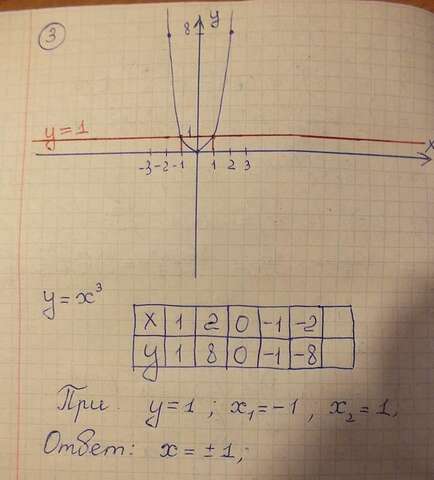 3
y
8
y=1
1
x
-3 -2 -1 1 2 3
y = x³
x 1 2 0 -1 -2
y 1 8 0 -1 -8
При y=1; x₁=-1, x₂=1,
Ответ: x=±1;